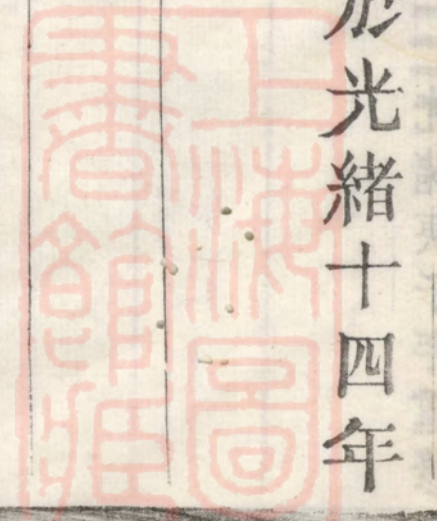 光緒十四年
上海圖
書館